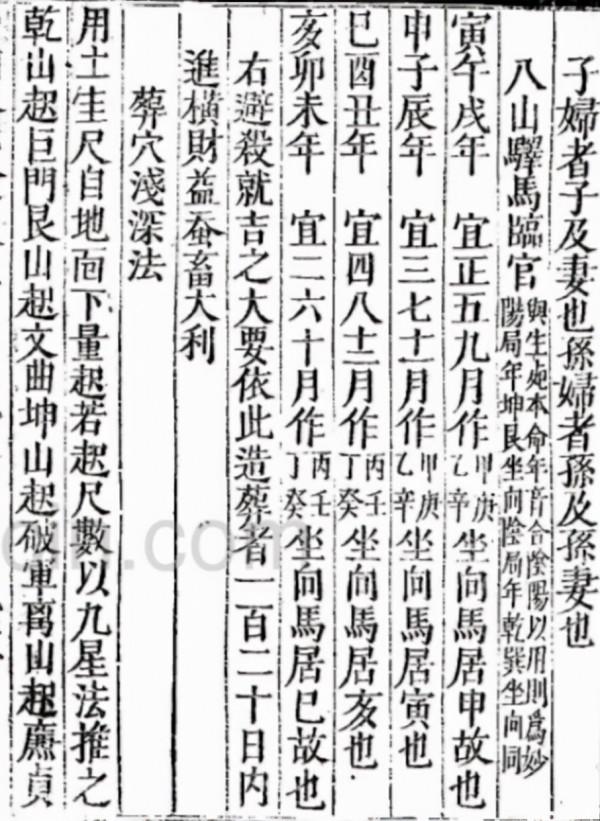 子婦者子及妻也孫婦者孫及孫妻也
八山驛馬臨官 與生剋本命年音合陰陽以用則爲妙
陽局年坤艮坐向陰局年乾巽坐向同
寅午戌年 宜正五九月作 甲庚乙辛 坐向馬居申故也
申子辰年 宜三七十一月作 甲庚乙辛 坐向馬居寅也
巳酉丑年 宜四八十二月作 丙壬丁癸 坐向馬居亥也
亥卯未年 宜二六十月作 丙壬丁癸 坐向馬居巳故也
右避殺就吉之大要依此造葬者一百二十日內
進橫財益蚕畜大利
葬穴淺深法
用土生尺自地面下量起若起尺數以九星法推之
乾山起巨門艮山起文曲坤山起破軍离山起廉貞